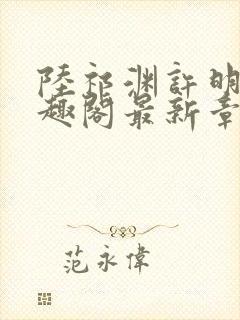 陸祁渊許明
趣閣最新章
范永偉